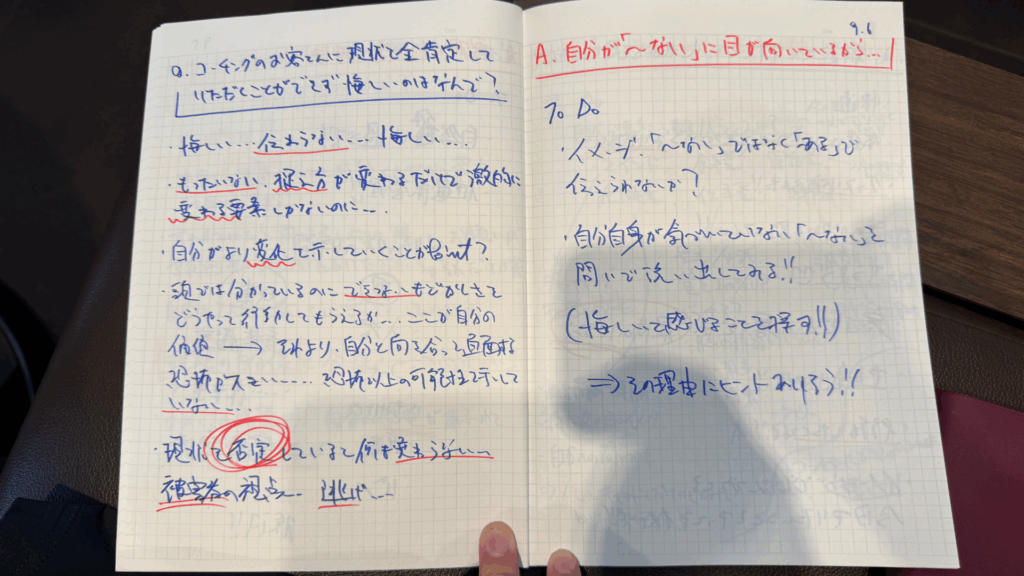 Q. コーチングのお客さんに現状を全肯定して
いただくことができず悔しいのはなんで?
・悔しい…伝わらない…悔しい…
・もったいない、捉え方が変わるだけで激的に
変わる要素しかないのに…
・自分がより変化を示していくことが
・頭では分かっているのにできないもどかしさを
どうやって行動してもらえるか…ここが自分の
価値 → それより、自分と向き合って直面する
恐怖がスゴい……で恐怖以上の可能性を示して
いない…
・現状を否定していると何も変わらない…
被害者の視点… 逃げ…
9.6
A. 自分が「〜ない」に目が向いているから…
To Do
・イメージ、「〜ない」ではなく「ある」で
伝えられないか?
・自分自身が気づいていない「〜ない」を
問いで洗い出してみる!!
(悔しいと感じることを探す!!)
⇒その理由にヒントありそう!!